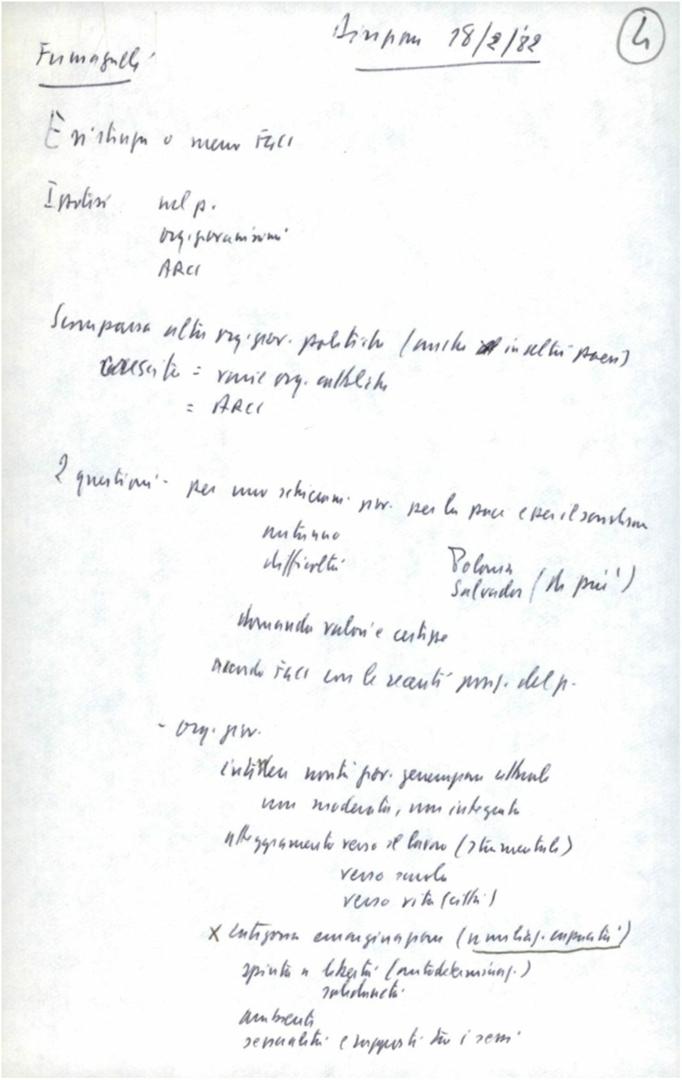 Direzione 18/2/'82
4
Fumagalli
Esistenza o meno FGCI
Ipotesi nel p.
org. giovanissimi
ARCI
Scomparsa altre org. giov. politiche (anche in altri paesi)
crescita = varie org. cattoliche
= ARCI
2 questioni - per nuovo schieram. giov. per la pace e per il
autunno
difficoltà Polonia
Salvador (di più)
domanda valori e certezze
FGCI con le recenti pos. del p.
- org. giov.
nuova generazione
non moderata, non integrata
atteggiamento verso il lavoro (strumentale)
verso scuola
verso vita (città)
x categoria emarginazione
spinta a libertà (autodeterminaz.)
solidarietà
ambiente
sessualità e rapporti tra i sessi